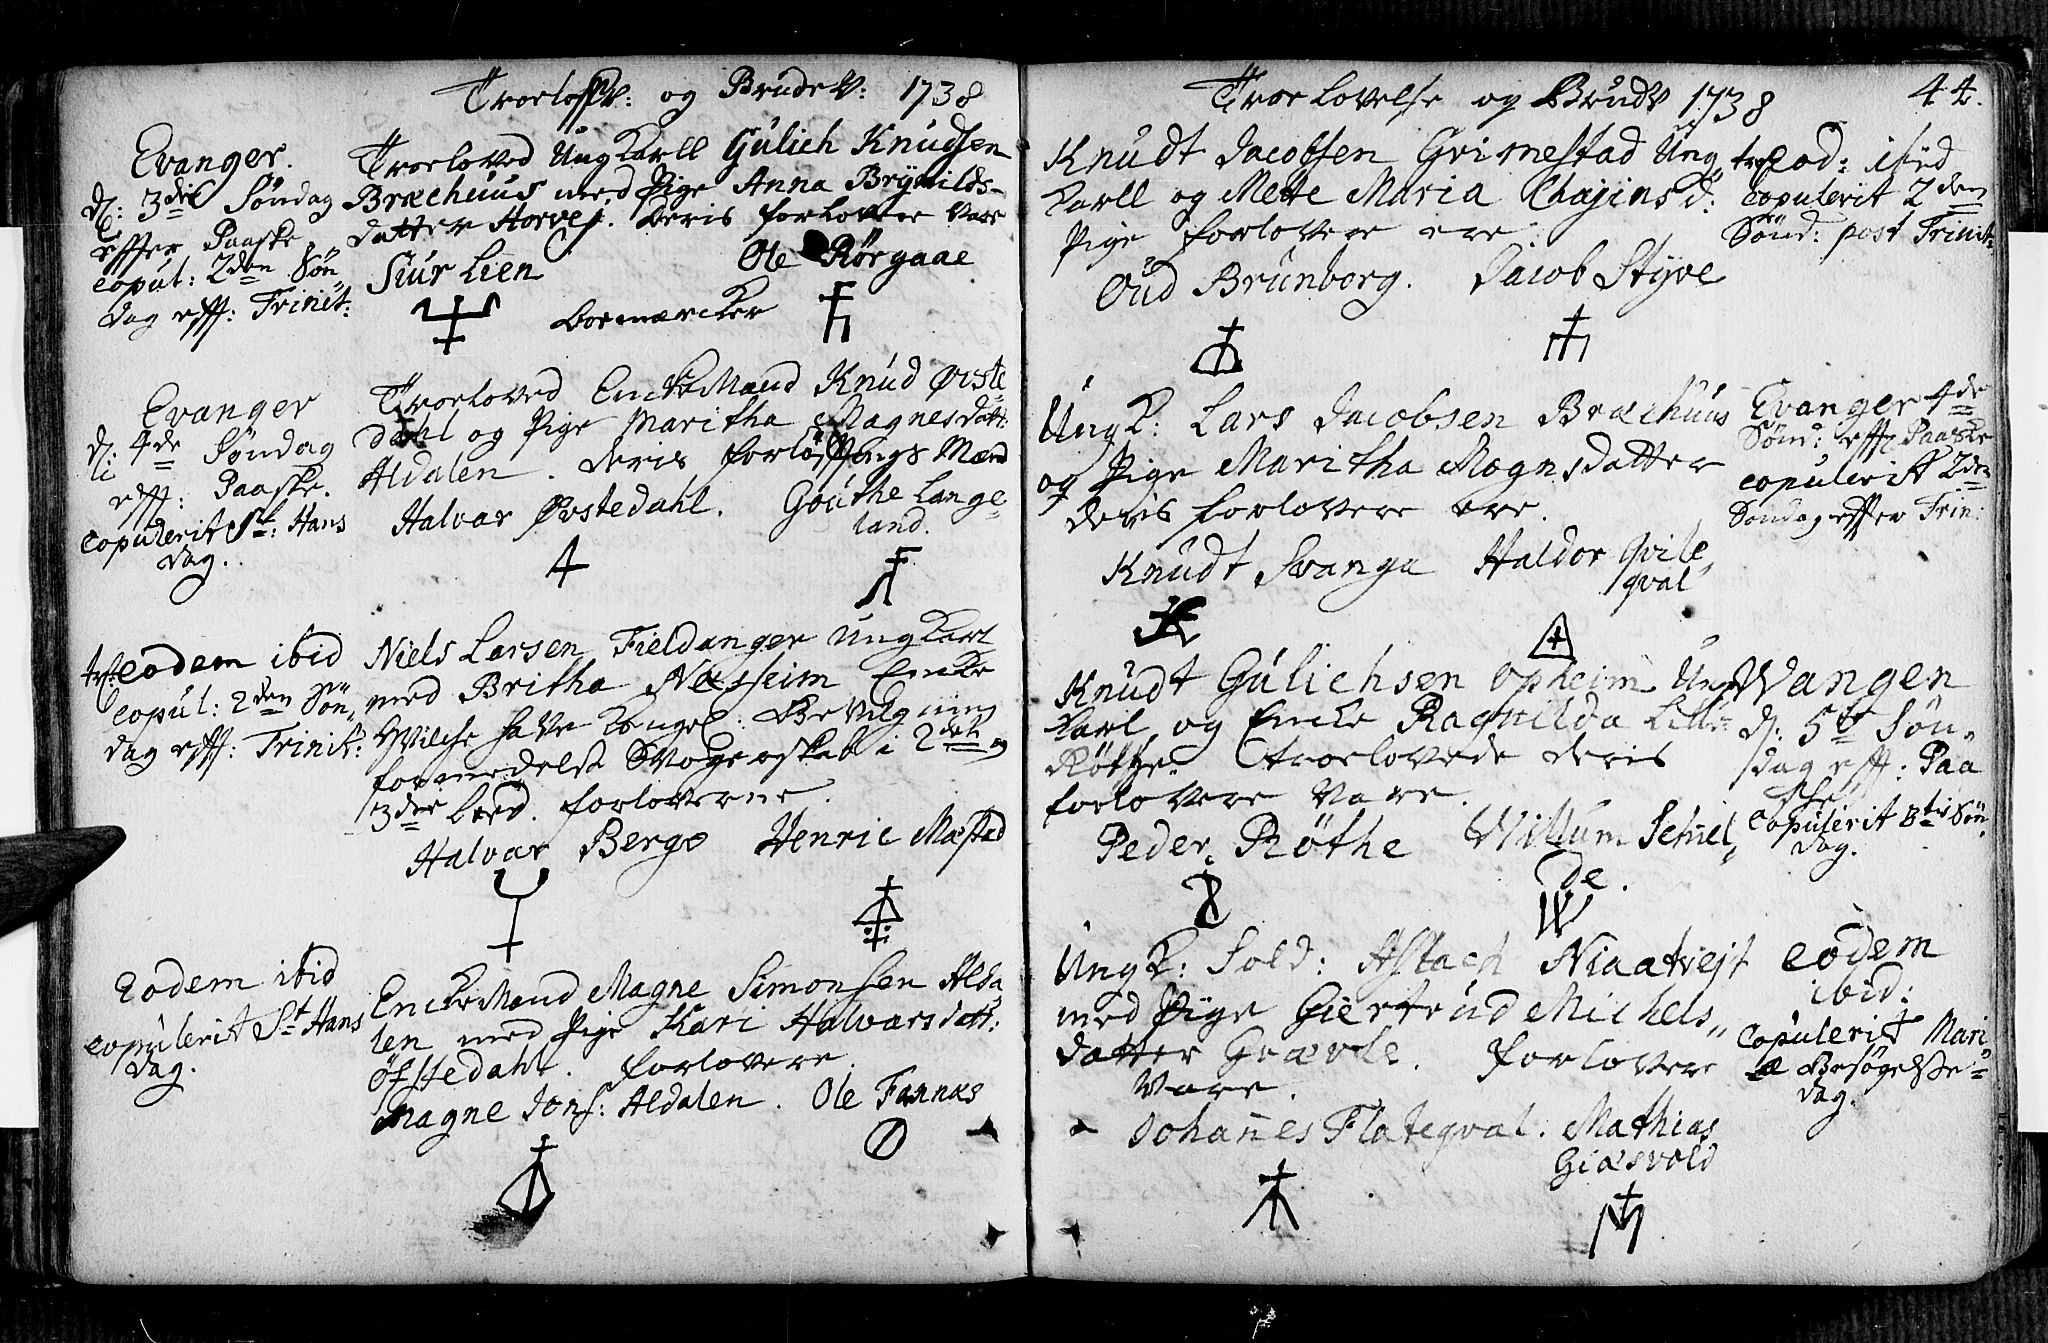 Troelofv: og Brudev: 1738
Evanger.
d: 3die Søndag
effter Paaske
Copul: 2den Søn
dag eff: Trinit:
Troeloved Ungkarll Gulich Knudsen
Bræchuus med Pige Anna Brynilds-
datter Horvej. Deris forlovere vare
Siur Lien Ole Rørgaae
boemærcker
Evanger
d: 4de Søndag
eff: Paaske.
Copulerit St: Hans
dag.
Troeloved Enckemand Knud Øvste
dahl og Pige Maritha Magnesdatt:
Aldalen. Deris forløfftings Mænd
Halvar Øvstedahl. Gouthe Lange-
land.
tr: eodem ibid
Copul: 2den Søn,
dag eff: Trinit:
Niels Larsen Fieldanger Ungkarl
med Britha Næsheim Encke
Hvilche have Kongel: Bevilgning
formedelst Svogerskab i 2det og
3die Leed. forloverne.
Halvar Berge Henric Mæstad
Eodem ibid
copulerit St Hans
dag.
Enckemand Magne Simonsen Alda
len med Pige Kari Halvarsdatt:
Øfstedahl. forlovere.
Magne Jons: Aldalen. Ole Fannæs
Troelovelse og Brudv 1738 44.
Knudt Jacobsen Grimestad Ung
karll og Mette Maria Chajins d:
Pige forlovere ere:
Oud Brunborg. Jacob Styve
tr: eod: ibid
Copulerit 2den
Sønd: post Trinit:
Ungk: Lars Jacobsen Bræchuus
og Pige Maritha Mognsdatter
deris forlovere ere.
Knudt Svanga Haldor Qvile
qval
Evanger 4de
Sønd: eff Paaske
copulerit 2den
Søndag effter Trin:
Knudt Gulichsen Opheim Ung
karl og Encke Ragnilda Lille
Røthe. troelovede deris
forlovere vare.
Peder Røthe Willum Schiel
de.
Wangen
d: 5te Søn
dag eff: Paa
ske
Copulerit 3tis Søn
dag.
Ungk: Sold: Aslach Niaatvejt
med Pige Giertrud Michels
datter Græвle. forlovere
vare.
Johannes Flateqval. Mathias
Giæsvold
eodem
ibid:
Copulerit Mari
æ Besøgelse
dag.